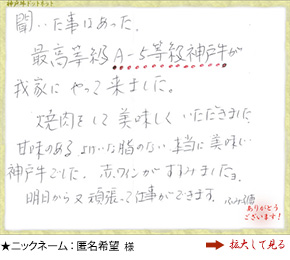 神戸牛ドットネット
聞いた事はあった、
最高等級A-5等級神戸牛が
我家にやって来ました。
焼肉をして美味しくいただきました
甘味のある よけいな脂のない 本当に美味しい
神戸牛でした。赤ワインがすすみましたョ。
明日から又頑張って仕事ができます。
ありがとう
ございます!
★ニックネーム：匿名希望 様
拡大して見る